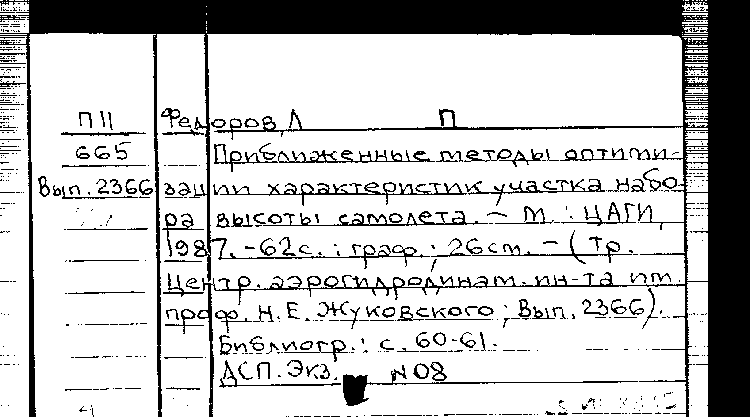 П11 Федоров, Л П
665 Приближенные методы оптими-
Вып. 2366 зации характеристик участка набо-
ра высоты самолета. – М.: ЦАГИ,
1987. -62с.: граф.; 26см. – (Тр.
Центр. аэрогидродинам. ин-та им.
проф. Н.Е. Жуковского; Вып. 2366).
Библиогр.: с. 60-61.
ДСП. Экз. N08